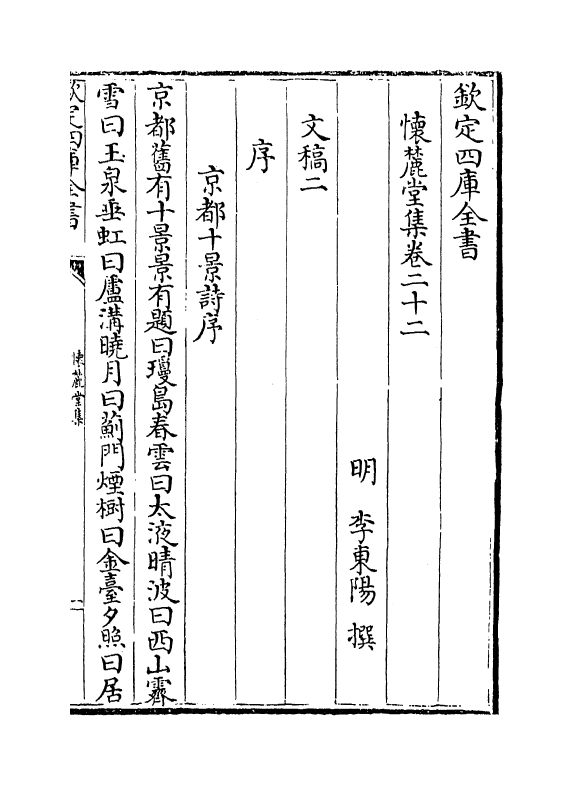 欽定四庫全書
懷麓堂集卷二十二
明 李東陽 撰
文稿二
序
京都十景詩序
京都舊有十景景有題曰瓊島春雲曰太液晴波曰西山霽
雪曰玉泉垂虹曰盧溝曉月曰薊門煙樹曰金臺夕照曰居
欽定四庫全書
懷麓堂集
一